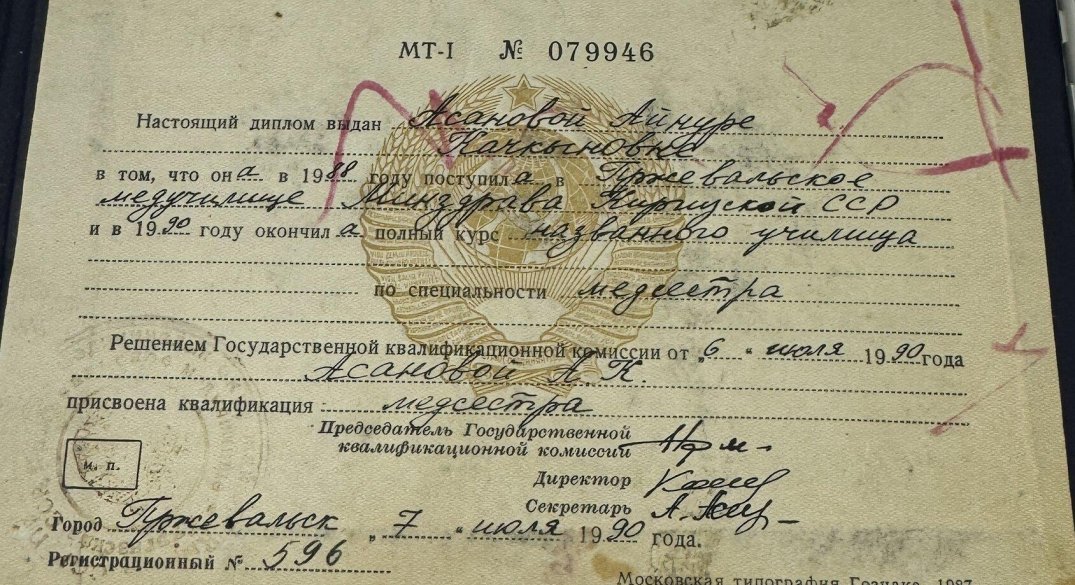 МТ-I № 079946
Настоящий диплом выдан Асановой Айнуре
Качкыновне
в том, что она в 1988 году поступила в Пржевальское
медучилище Минздрава Киргизской ССР
и в 1990 году окончила полный курс названного училища
по специальности медсестра
Решением Государственной квалификационной комиссии от „6“ июля 1990 года
Асановой А. К.
присвоена квалификация медсестра
Председатель Государственной
квалификационной комиссии
Директор
Секретарь
м. п.
Город Пржевальск „7“ июля 1990 года.
Регистрационный № 596
Московская типография Гознака. 1987.